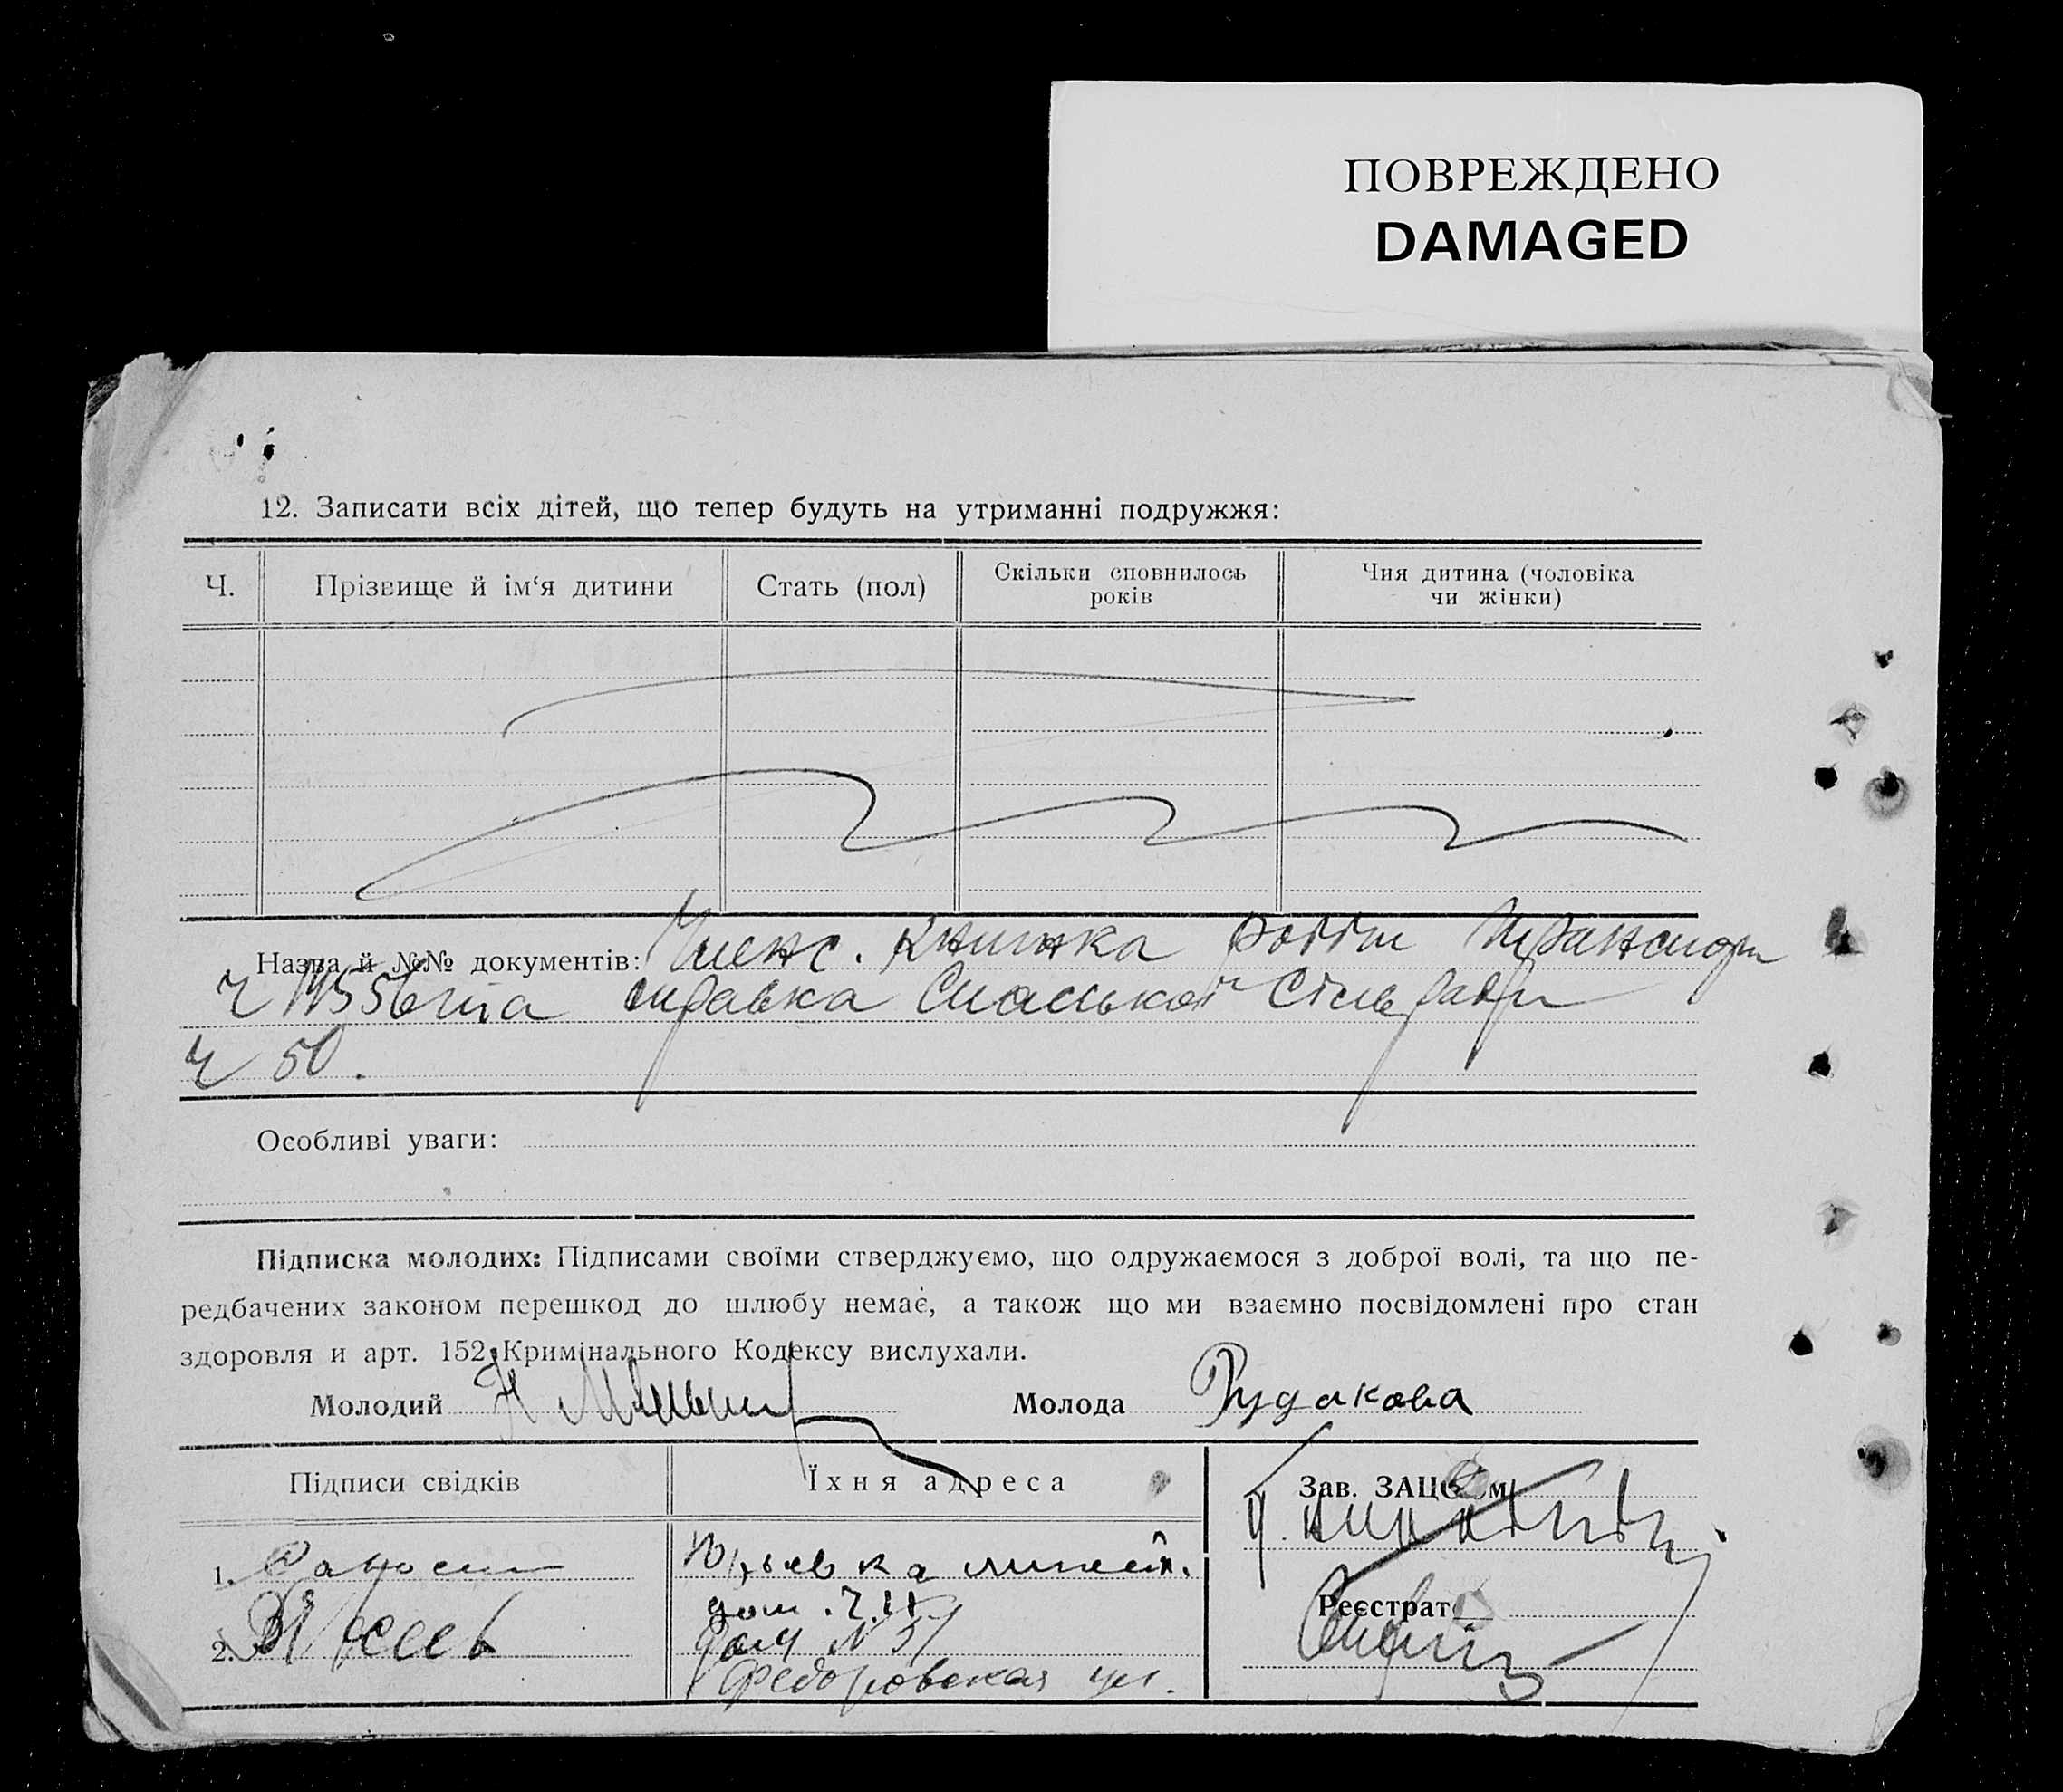 ПОВРЕЖДЕНО
DAMAGED
12. Записати всіх дітей, що тепер будуть на утриманні подружжя:
Ч. Прізвище й ім‘я дитини Стать (пол) Скільки сповнилось років Чия дитина (чоловіка чи жінки)
Назва й №№ документів: Членс. книжка робітн транспорт
ч та справка Спаської сільради
ч 50.
Особливі уваги:
Підписка молодих: Підписами своїми стверджуємо, що одружаємося з доброї волі, та що пе-
редбачених законом перешкод до шлюбу немає, а також що ми взаємно посвідомлені про стан
здоровля и арт. 152 Кримінального Кодексу вислухали.
Молодий Молода Рудакова
Підписи свідків Їхня адреса Зав. ЗАЦС‘ом
1. Юрьевка линейн.
дом . 7.
Реєстрат
2. дом № 51
Федоровская ул.